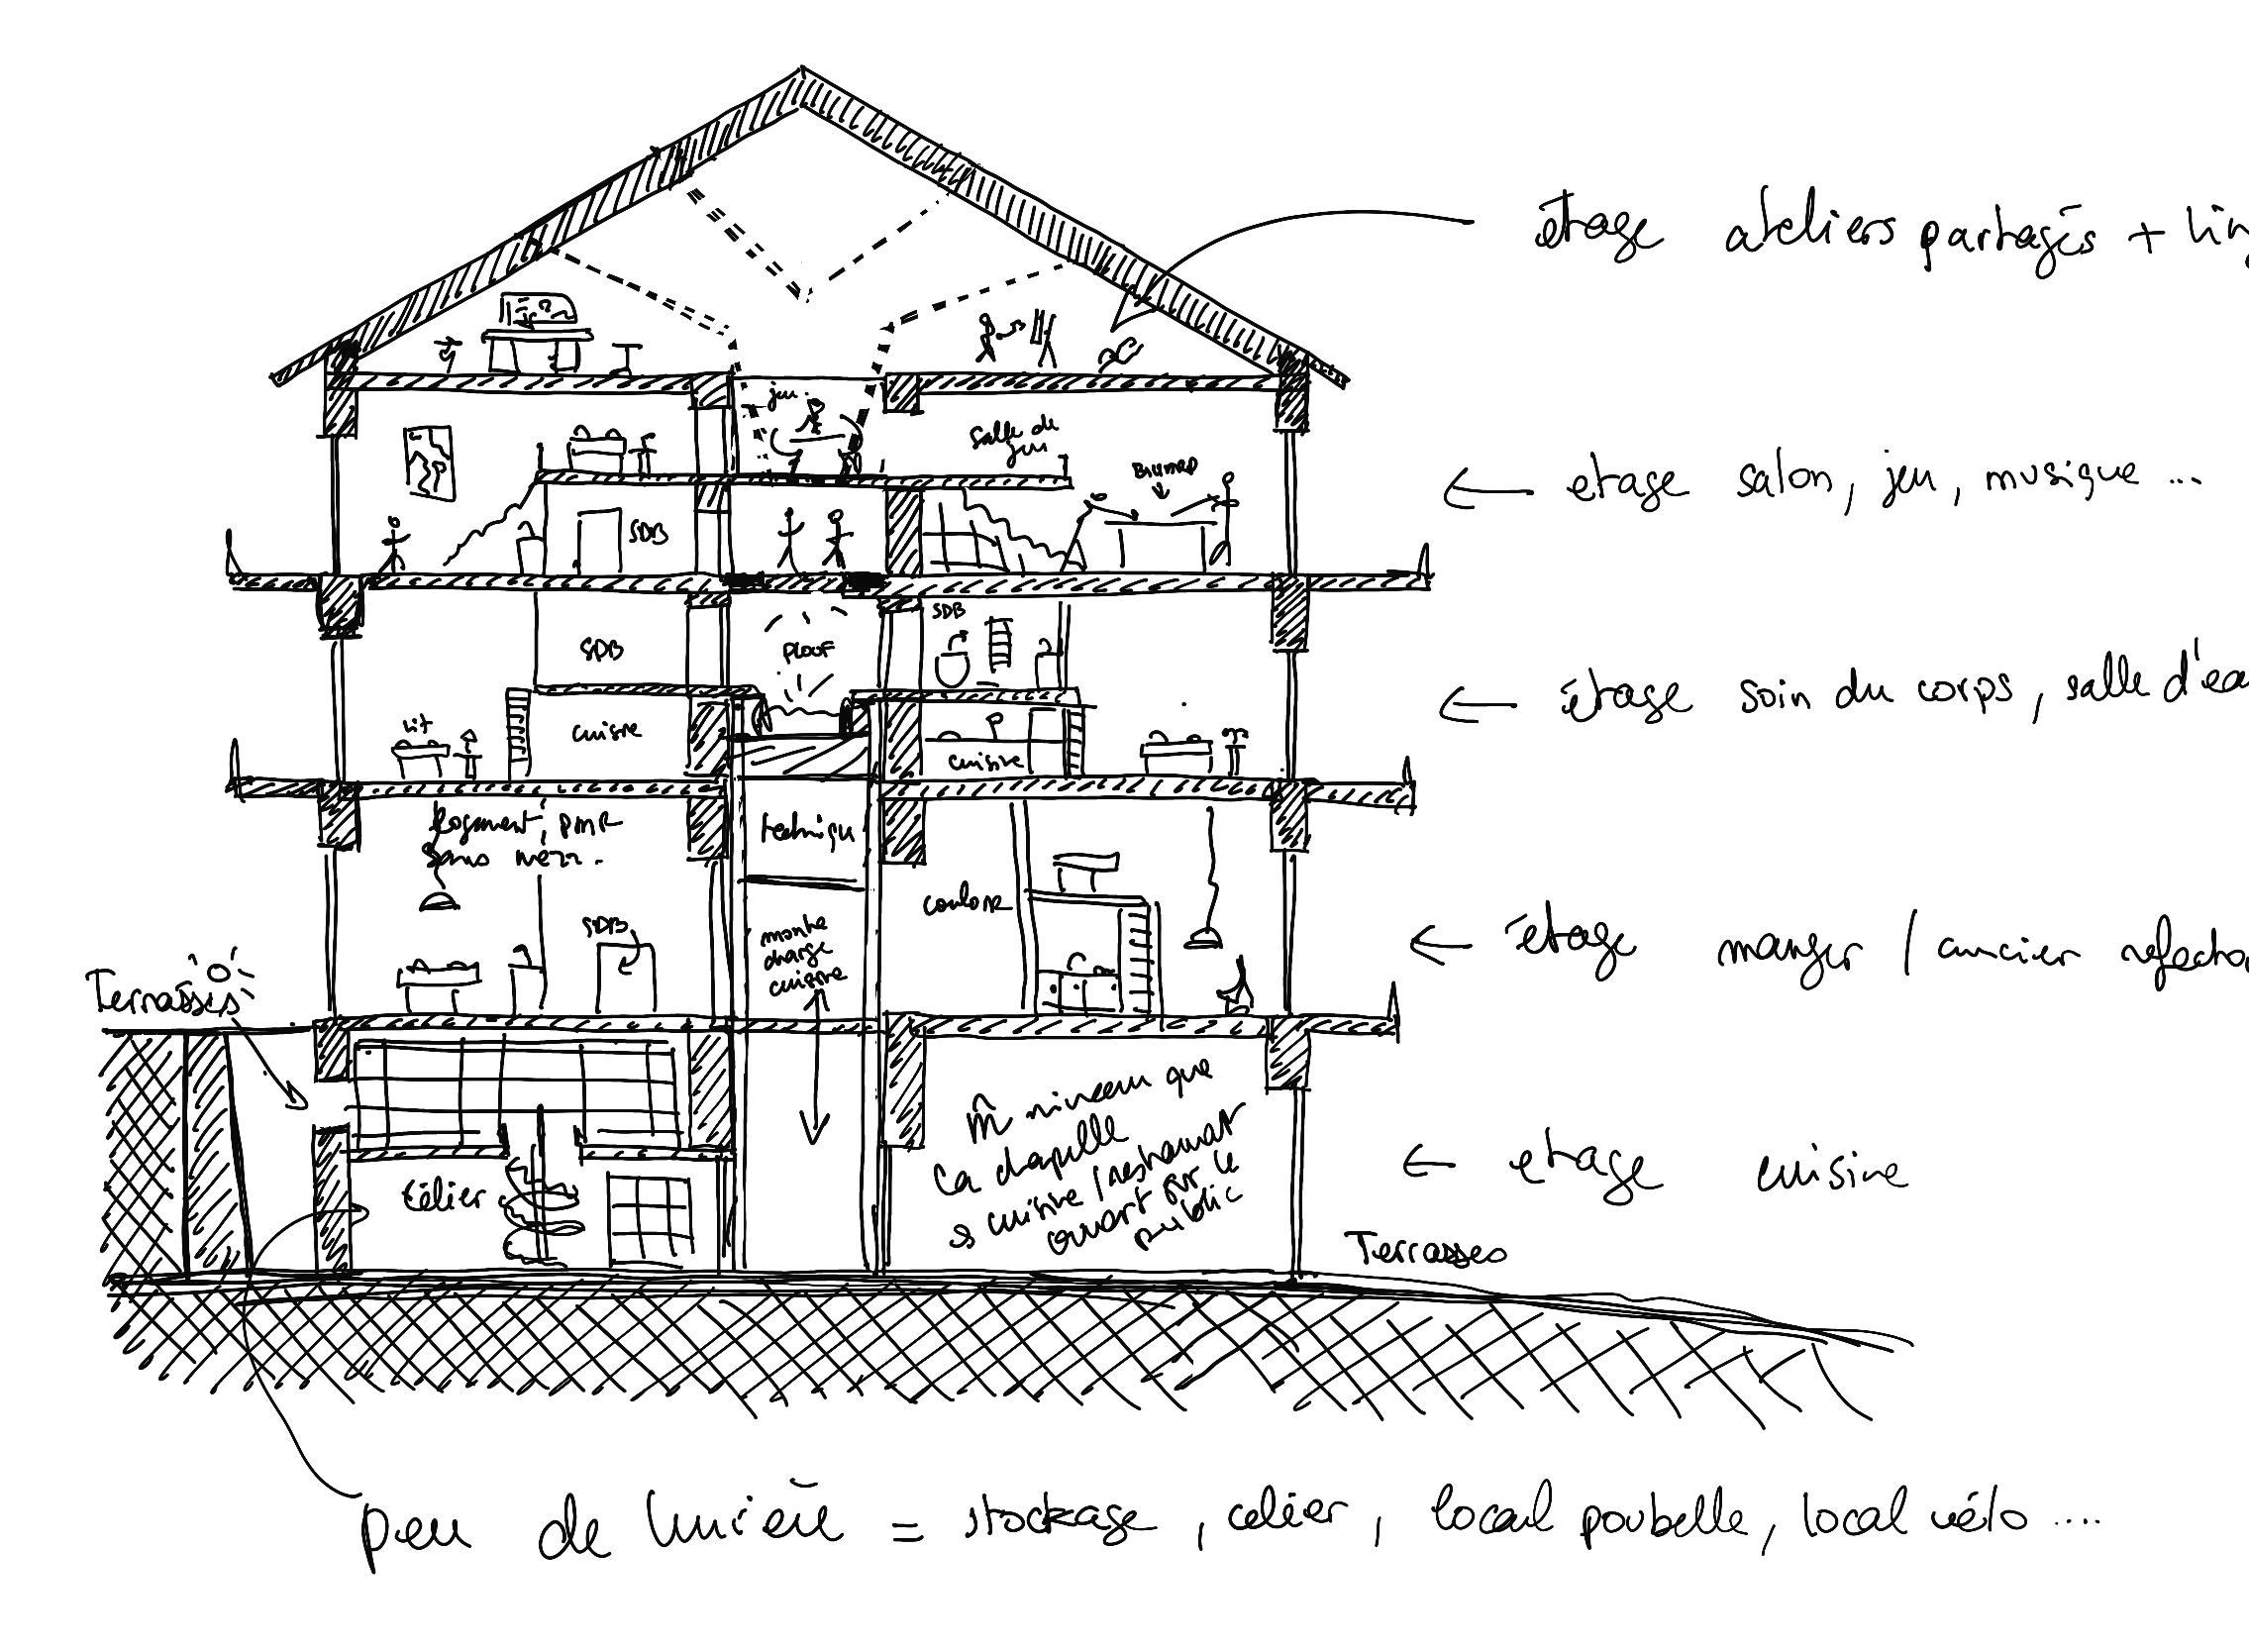 étage ateliers partagés + lin
jeu
salle de
jeu
Billard
← etage salon, jeu, musique ...
SDB
SDB
SDB
PLOUF
← étage soin du corps, salle d'eau
lit
cuisine
cuisine
logement PMR
sans mezz.
technique
couloir
SDB
monte
charge
cuisine
← étage manger / ancier refecto
Terrasses
m̂ niveau que
la chapelle
cuisine / restaurant
ouvert sur le
public
← etage cuisine
célier
Terrasses
peu de lumière = stockage, celier, local poubelle, local vélo ....